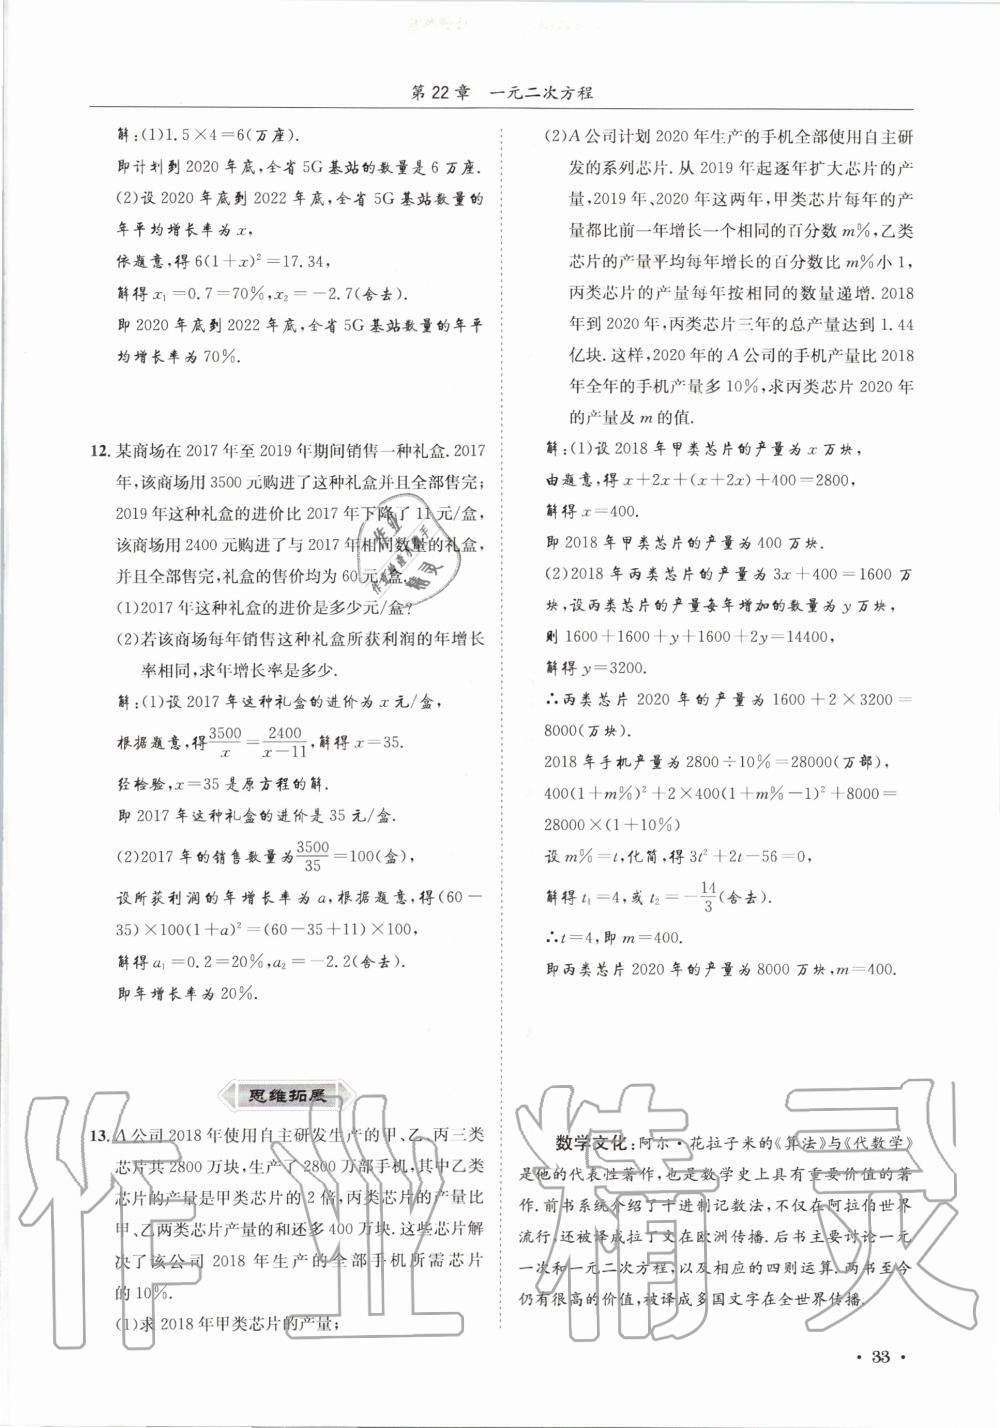 第22章 一元二次方程
解:(1)1.5×4=6(万座).
即计划到2020年底,全省5G基站的数量是6万座.
(2)设2020年底到2022年底,全省5G基站数量的
年平均增长率为x,
依题意,得6(1+x)²=17.34,
解得x₁=0.7=70%,x₂=-2.7(舍去).
即2020年底到2022年底,全省5G基站数量的年平
均增长率为70%.
12.某商场在2017年至2019年期间销售一种礼盒.2017
年,该商场用3500元购进了这种礼盒并且全部售完;
2019年这种礼盒的进价比2017年下降了11元/盒,
该商场用2400元购进了与2017年相同数量的礼盒,
并且全部售完,礼盒的售价均为60元/盒.
(1)2017年这种礼盒的进价是多少元/盒?
(2)若该商场每年销售这种礼盒所获利润的年增长
率相同,求年增长率是多少.
解:(1)设2017年这种礼盒的进价为x元/盒,
根据题意,得3500/x=2400/(x-11),解得x=35.
经检验,x=35是原方程的解.
即2017年这种礼盒的进价是35元/盒.
(2)2017年的销售数量为3500/35=100(盒),
设所获利润的年增长率为a,根据题意,得(60-
35)×100(1+a)²=(60-35+11)×100,
解得a₁=0.2=20%,a₂=-2.2(舍去).
即年增长率为20%.
思维拓展
13.A公司2018年使用自主研发生产的甲、乙、丙三类
芯片共2800万块,生产了2800万部手机,其中乙类
芯片的产量是甲类芯片的2倍,丙类芯片的产量比
甲、乙两类芯片产量的和还多400万块.这些芯片解
决了该公司2018年生产的全部手机所需芯片
的10%.
(1)求2018年甲类芯片的产量;
(2)A公司计划2020年生产的手机全部使用自主研
发的系列芯片.从2019年起逐年扩大芯片的产
量,2019年、2020年这两年,甲类芯片每年的产
量都比前一年增长一个相同的百分数m%,乙类
芯片的产量平均每年增长的百分数比m%小1,
丙类芯片的产量每年按相同的数量递增.2018
年到2020年,丙类芯片三年的总产量达到1.44
亿块.这样,2020年的A公司的手机产量比2018
年全年的手机产量多10%,求丙类芯片2020年
的产量及m的值.
解:(1)设2018年甲类芯片的产量为x万块,
由题意,得x+2x+(x+2x)+400=2800,
解得x=400.
即2018年甲类芯片的产量为400万块.
(2)2018年丙类芯片的产量为3x+400=1600万
块,设丙类芯片的产量每年增加的数量为y万块,
则1600+1600+y+1600+2y=14400,
解得y=3200.
∴丙类芯片2020年的产量为1600+2×3200=
8000(万块).
2018年手机产量为2800÷10%=28000(万部),
400(1+m%)²+2×400(1+m%-1)²+8000=
28000×(1+10%)
设m%=t,化简,得3t²+2t-56=0,
解得t₁=4,或t₂=-14/3(舍去).
∴t=4,即m=400.
即丙类芯片2020年的产量为8000万块,m=400.
数学文化:阿尔·花拉子米的《算法》与《代数学》
是他的代表性著作,也是数学史上具有重要价值的著
作.前书系统介绍了十进制记数法,不仅在阿拉伯世界
流行,还被译成拉丁文在欧洲传播.后书主要讨论一元
一次和一元二次方程,以及相应的四则运算.两书至今
仍有很高的价值,被译成多国文字在全世界传播.
·33·
作业精灵
作业
作业快速小帮手
精灵